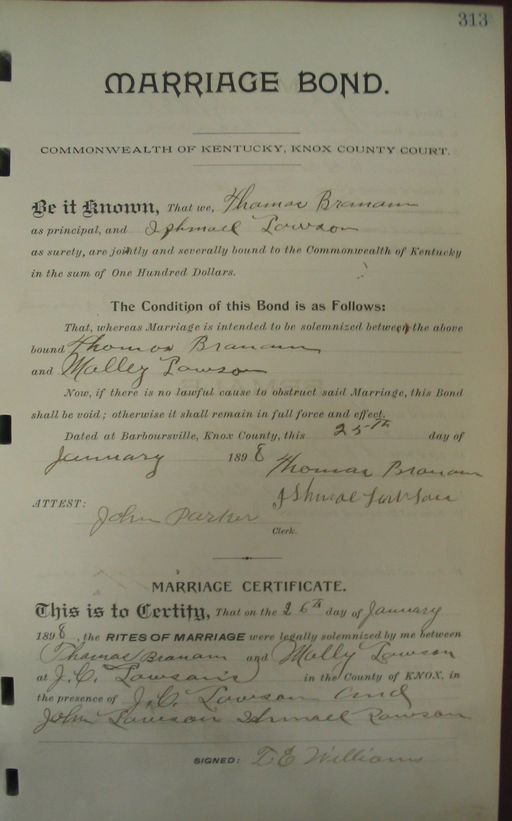 313
MARRIAGE BOND.
COMMONWEALTH OF KENTUCKY, KNOX COUNTY COURT.
Be it Known, That we, Thomas Branam
as principal, and Ishmael Lawson
as surety, are jointly and severally bound to the Commonwealth of Kentucky
in the sum of One Hundred Dollars.
The Condition of this Bond is as Follows:
That, whereas Marriage is intended to be solemnized between the above
bound Thomas Branam
and Malley Lawson
Now, if there is no lawful cause to obstruct said Marriage, this Bond
shall be void; otherwise it shall remain in full force and effect.
Dated at Barboursville, Knox County, this 25th day of
January 1898
Thomas Branam
ATTEST:
John Parker
Clerk.
MARRIAGE CERTIFICATE.
This is to Certity, That on the 26th day of January
1898, the RITES OF MARRIAGE were legally solemnized by me between
Thomas Branam and Molly Lawson
at J.C. Lawson's in the County of KNOX, in
the presence of J.C. Lawson and
John Lawson Ishmael Lawson
SIGNED: T E Williams